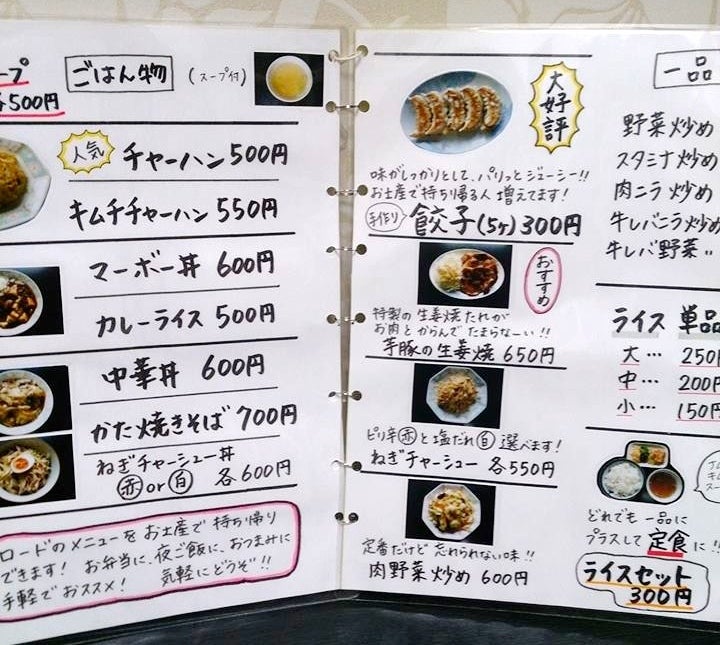 ープ
各500円
ごはん物
(スープ付)
人気 チャーハン 500円
キムチチャーハン 550円
マーボー丼 600円
カレーライス 500円
中華丼 600円
かた焼きそば 700円
ねぎチャーシュー丼
赤or白 各600円
ロードのメニューをお土産で持ち帰り
できます! お弁当に、夜ご飯に、おつまみに
手軽でおススメ! 気軽にどうぞ!!
大好評
味がしっかりとして、パリっとジューシー!!
お土産で持ち帰る人 増えてます!
手作り 餃子(5ケ)300円
おすすめ
特製の生姜焼たれが
お肉とからんでたまらなーい!!
芋豚の生姜焼 650円
ピリ辛赤と塩だれ白 選べます!
ねぎチャーシュー 各550円
定番だけど 忘れられない味!!
肉野菜炒め 600円
一品
野菜炒め
スタミナ炒め
肉ニラ炒め
牛レバニラ炒め
牛レバ野菜〃
ライス 単品
大… 250円
中… 200円
小… 150円
どれでも一品に
プラスして定食に!!
ライスセット
300円